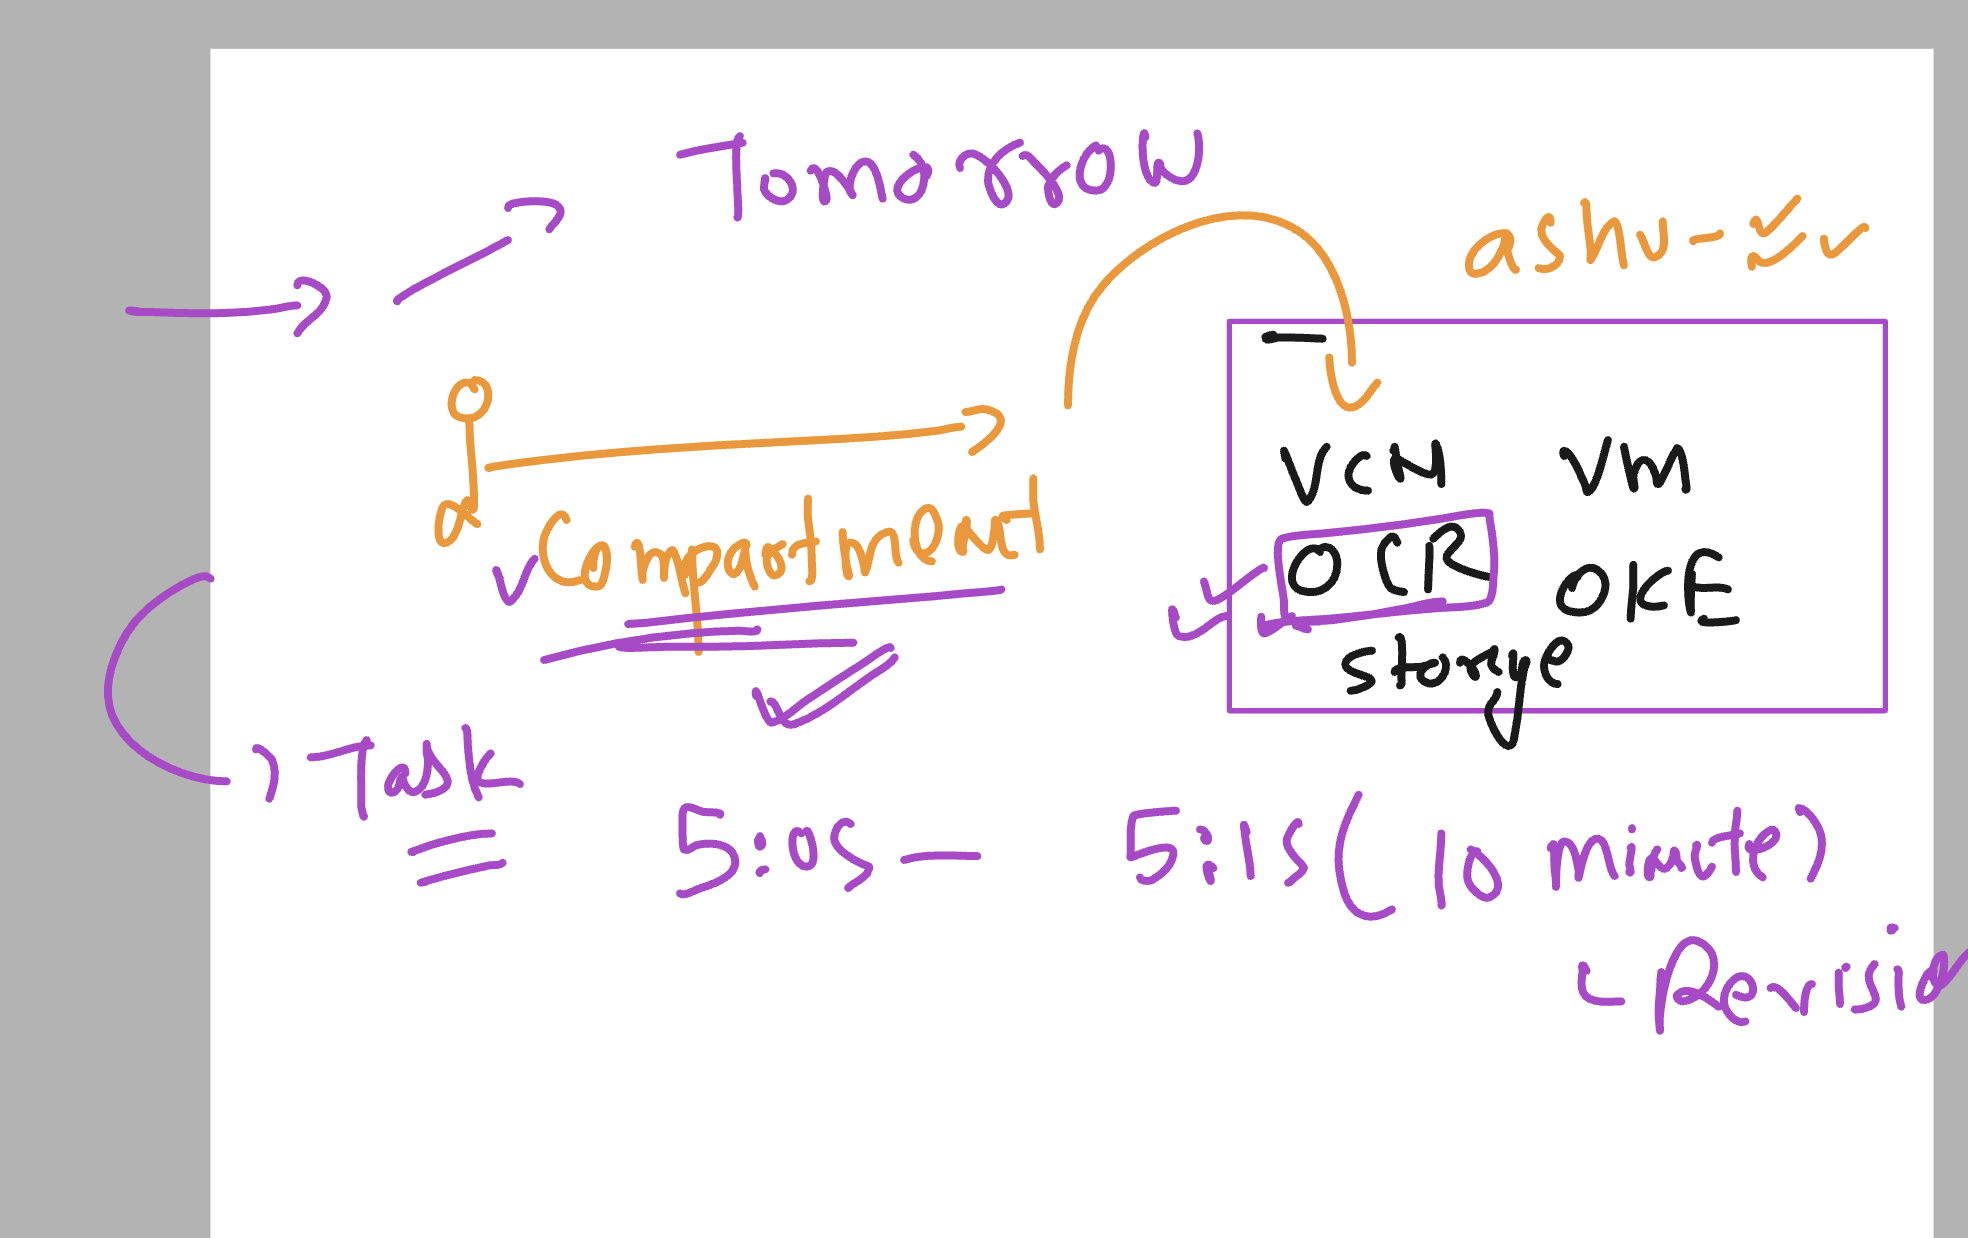 Tomorrow
ashu-
VCN VM
Compartment
OCR OKE
storage
Task
5:05 — 5:15 (10 minute)
Revision